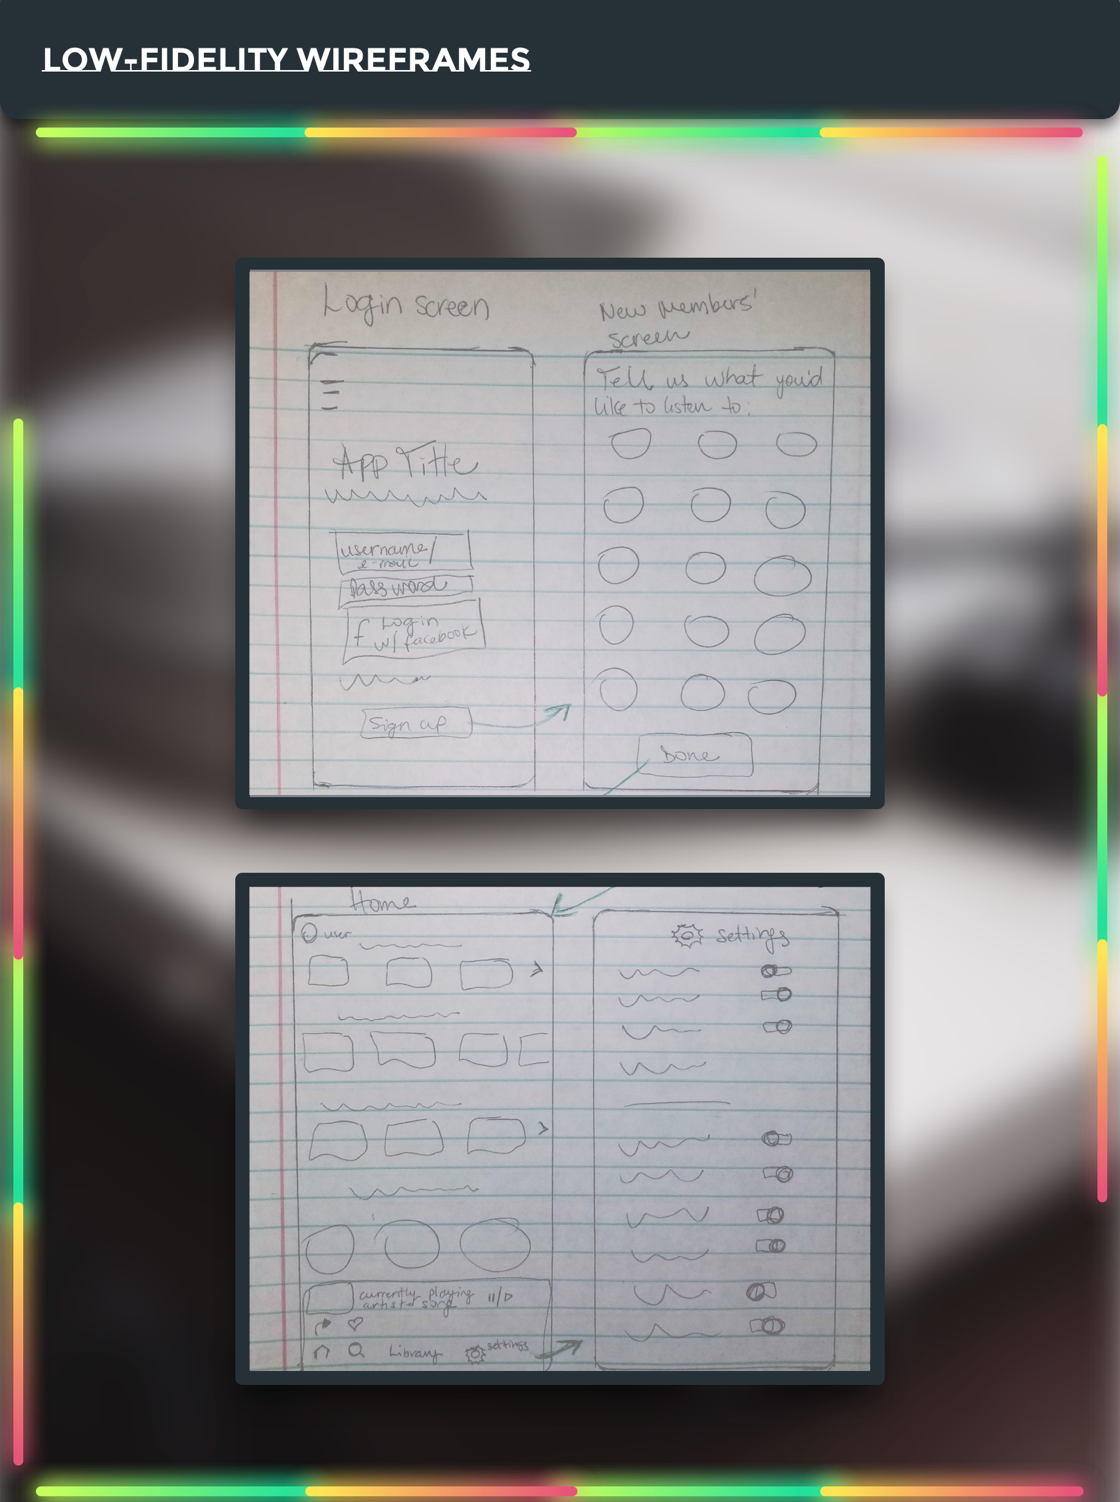 LOW-FIDELITY WIREFRAMES
Login screen
App Title
username/
e-mail
Password
f Login
w/ facebook
Sign up
New Members'
screen
Tell us what you'd
like to listen to:
Done
Home
user
currently playing
artist + song
Library
settings
settings